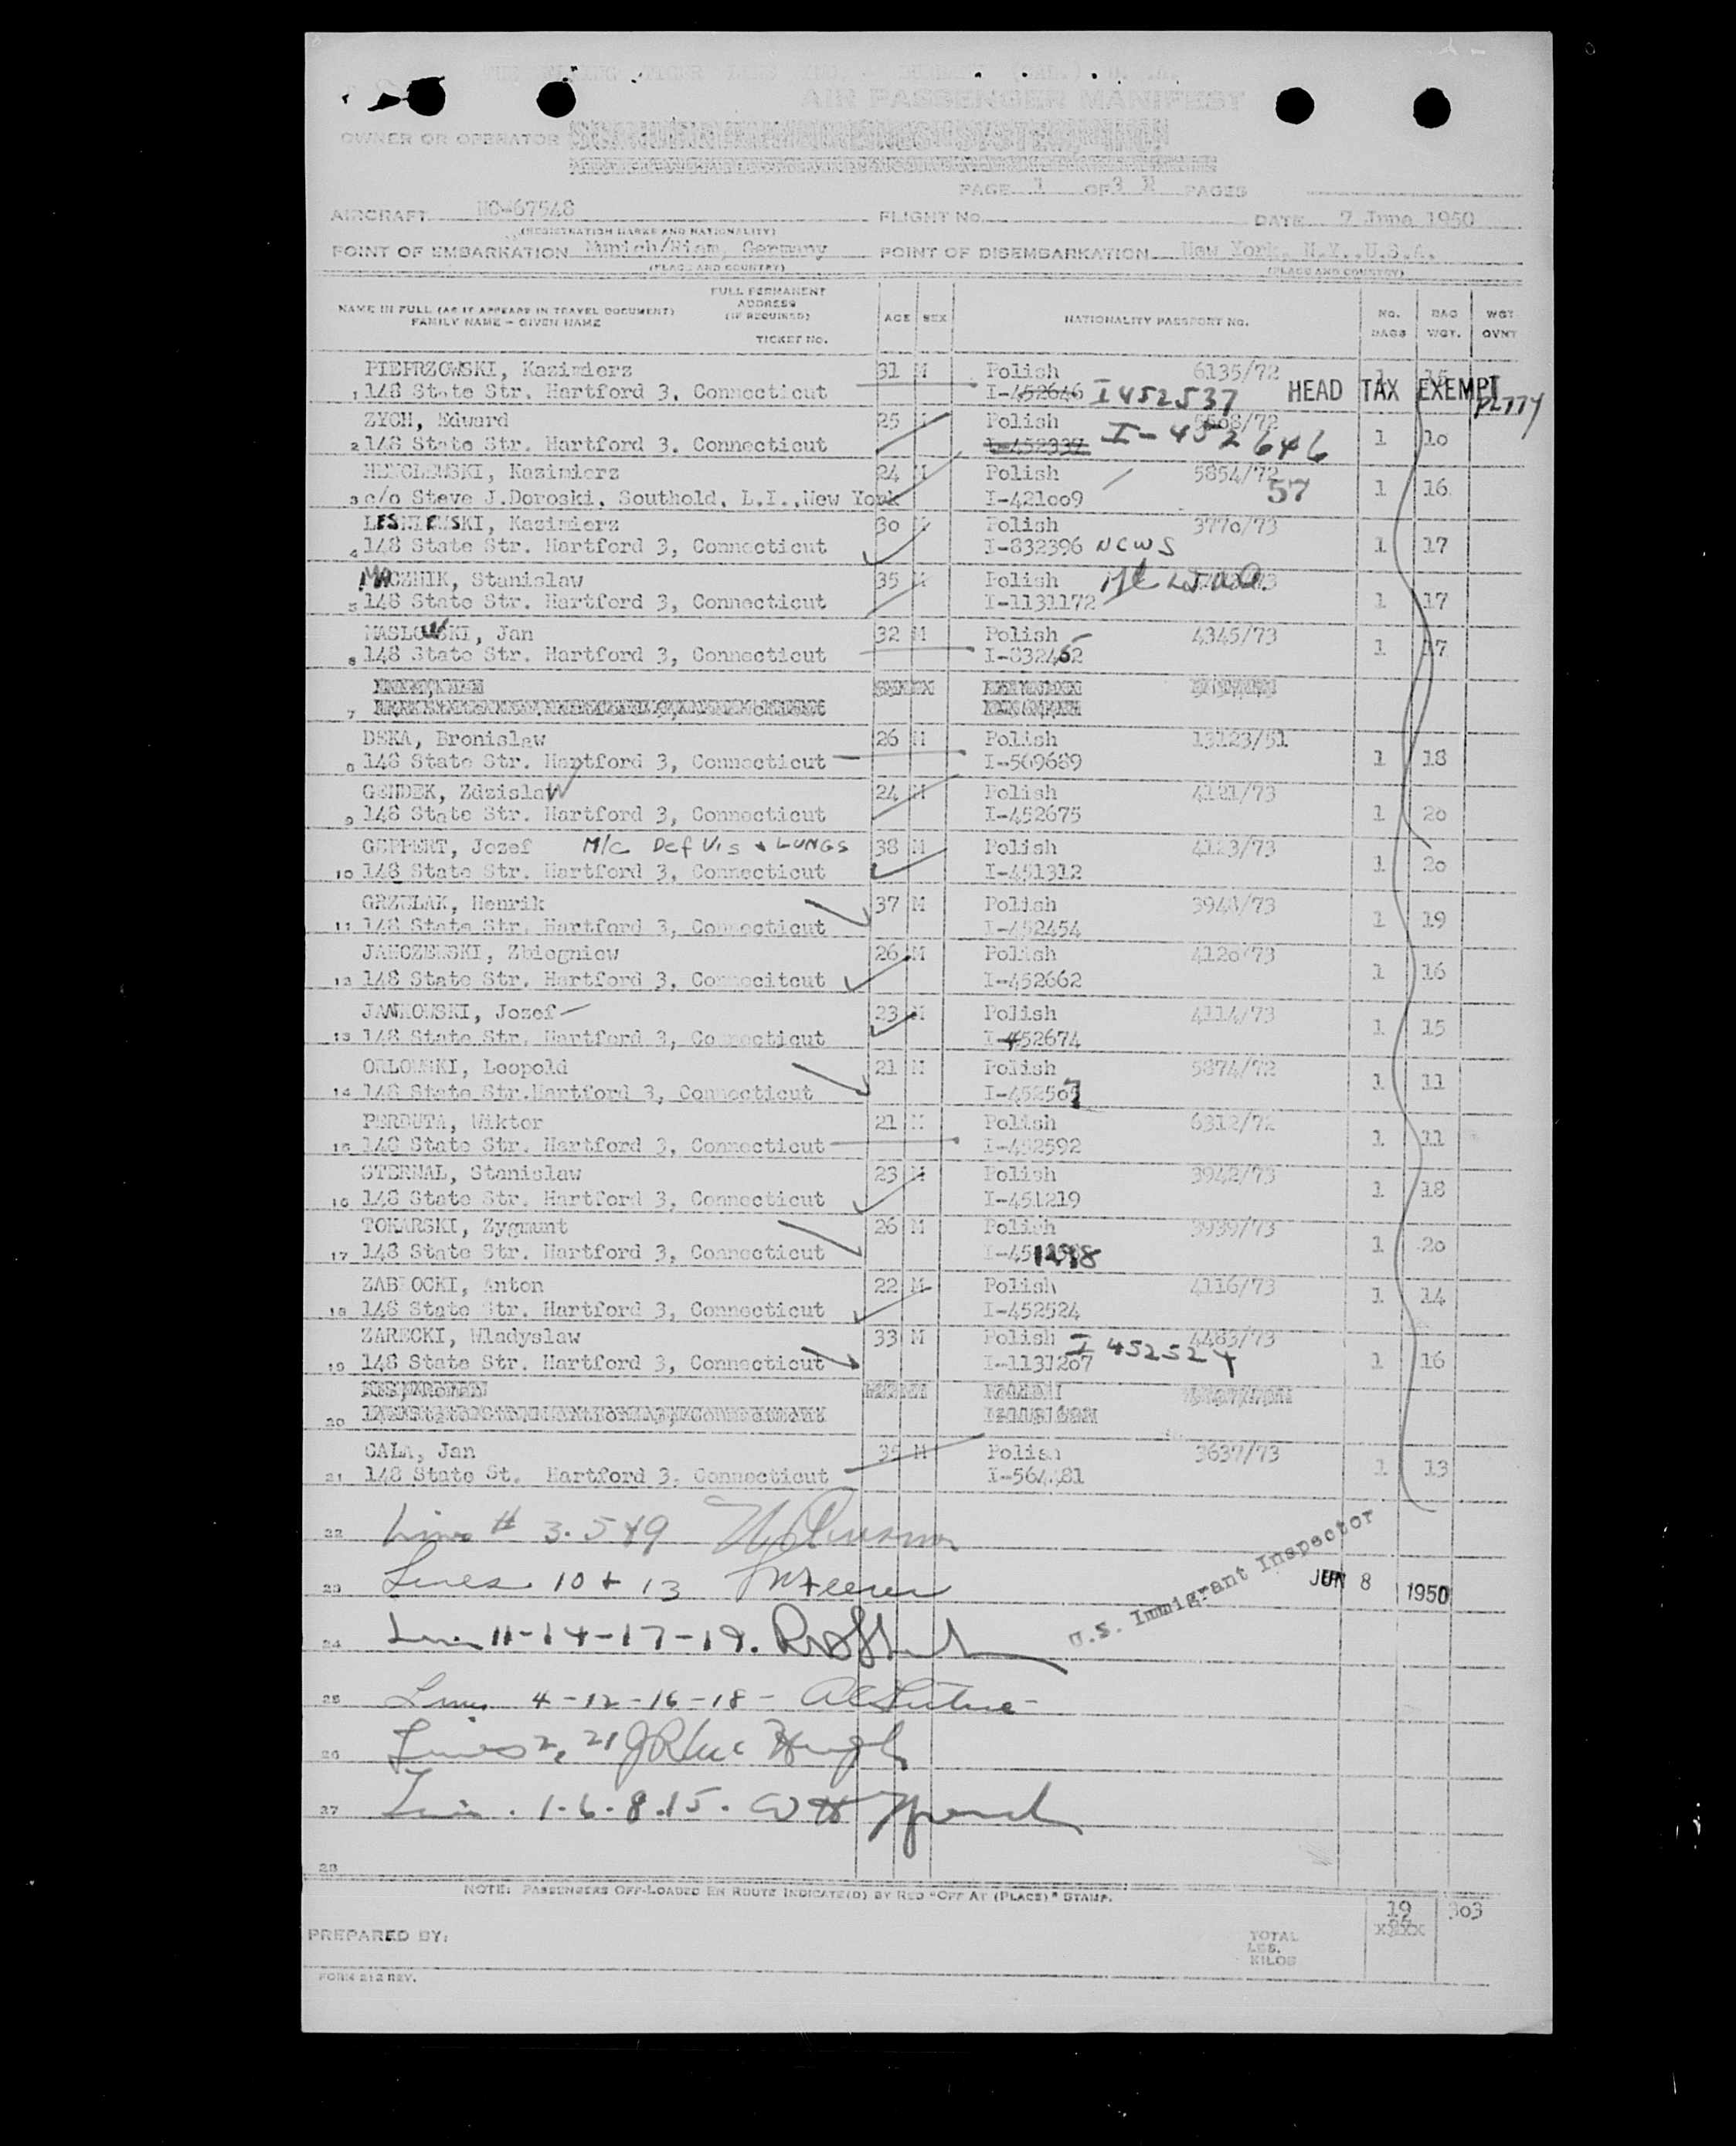 AIR PASSENGER MANIFEST
OWNER OR OPERATOR
PAGE 1 OF 3 PAGES
AIRCRAFT NC-67548 FLIGHT No. DATE 7 June 1950
(REGISTRATION MARKS AND NATIONALITY)
POINT OF EMBARKATION Munich/Riem, Germany POINT OF DISEMBARKATION New York, N.Y.,U.S.A.
(PLACE AND COUNTRY) (PLACE AND COUNTRY)
NAME IN FULL (AS IT APPEARS IN TRAVEL DOCUMENT) FAMILY NAME - GIVEN NAME FULL PERMANENT ADDRESS (IF REQUIRED) TICKET No. AGE SEX NATIONALITY PASSPORT NO. NO. BAGS BAG WGT. WGT OVNT
PIEPRZOWSKI, Kazimierz 31 M Polish 6135/72 1 15
1 148 State Str. Hartford 3, Connecticut I-452646 I452537 HEAD TAX EXEMPT PL774
ZYCH, Edward 25 Polish 5568/72
2 148 State Str. Hartford 3. Connecticut I-452337 I-452646 1 10
Kazimierz 24 M Polish 5854/72
3 c/o Steve J.Doroski, Southold, L.I.,New York I-421009 57 1 16
LESNIEWSKI, Kazimierz 30 M Polish 3770/73
4 148 State Str. Hartford 3, Connecticut I-832396 NCWS 1 17
MACZNIK, Stanislaw 35 M Polish
5 148 State Str. Hartford 3, Connecticut I-1131172 1 17
MASLOWSKI, Jan 32 M Polish 4345/73
6 148 State Str. Hartford 3, Connecticut I-832462 1 17
7
DEKA, Bronislaw 26 M Polish 13123/51
8 148 State Str. Hartford 3, Connecticut I-569689 1 18
GENDEK, Zdzislaw 24 M Polish 4121/73
9 148 State Str. Hartford 3, Connecticut I-452675 1 20
GEPPERT, Jozef M/C Def Vis & LUNGS 38 M Polish 4123/73
10 148 State Str. Hartford 3, Connecticut I-451312 1 20
GRZELAK, Henrik 37 M Polish 3948/73
11 148 State Str. Hartford 3, Connecticut I-452454 1 19
JANCZEWSKI, Zbiegniew 26 M Polish 4120/73
12 148 State Str. Hartford 3, Connecitcut I-452662 1 16
JANKOWSKI, Jozef 23 M Polish 4114/73
13 148 State Str. Hartford 3, Connecticut I-452674 1 15
ORLOWSKI, Leopold 21 M Polish 5874/72
14 148 State Str.Hartford 3, Connecticut I-452567 1 11
PERDUTA, Wiktor 21 M Polish 6312/72
15 148 State Str. Hartford 3, Connecticut I-452592 1 11
STERNAL, Stanislaw 23 M Polish 3942/73
16 148 State Str. Hartford 3, Connecticut I-451219 1 18
TOKARSKI, Zygmunt 26 M Polish 3939/73
17 148 State Str. Hartford 3, Connecticut I-451298 1 20
ZABLOCKI, Anton 22 M Polish 4116/73
18 148 State Str. Hartford 3, Connecticut I-452524 1 14
ZARECKI, Wladyslaw 33 M Polish I 452524 4483/73
19 148 State Str. Hartford 3, Connecticut I-1131207 1 16
20
GALA, Jan 35 M Polish 3637/73
21 148 State St. Hartford 3. Connecticut I-564481 1 13
22 Line # 3.5 & 9
23 Lines 10 & 13
U.S. Immigrant Inspector JUN 8 1950
24 Lines 11-14-17-19.
25 Lines 4-12-16-18-
26 Lines 2, 21 J R Mc Hugh
27 Lines. 1.6.8.15.
28
NOTE: PASSENGERS OFF-LOADED EN ROUTE INDICATE(D) BY RED "OFF AT (PLACE)" STAMP.
19 303
PREPARED BY: TOTAL LBS. KILOS
FORM 212 REV.